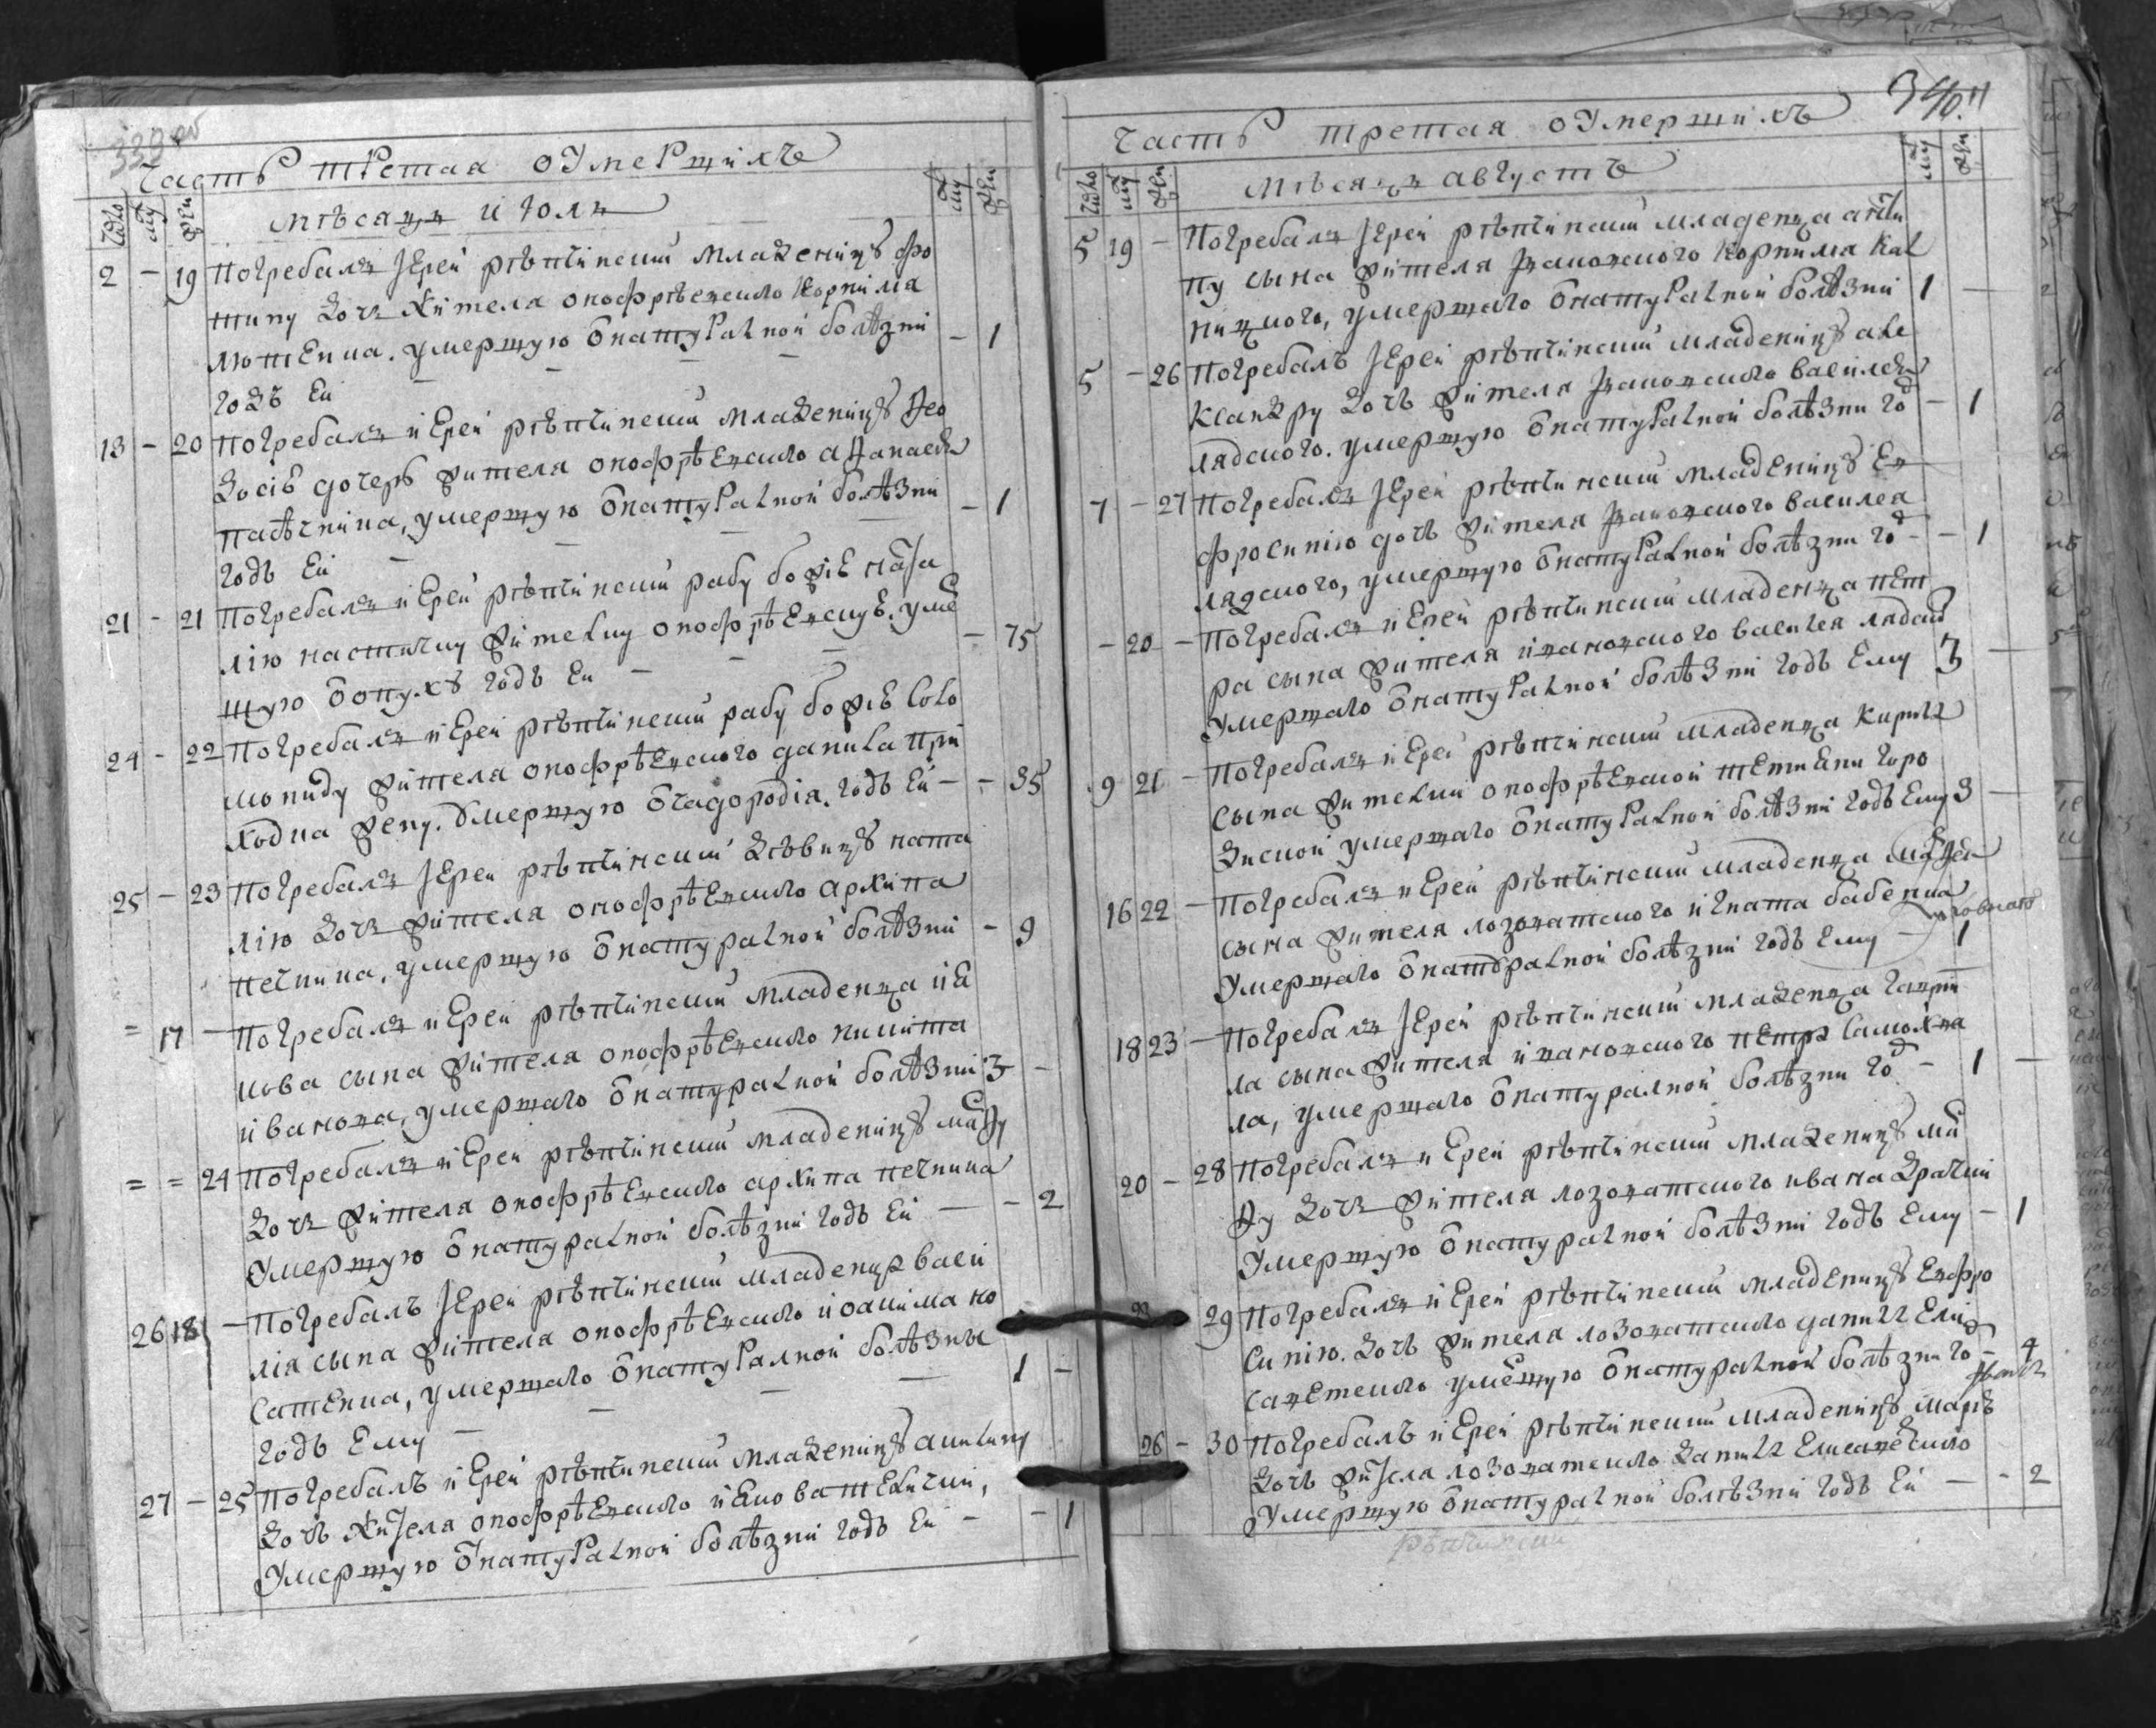 Часть третая о умершихъ
число му жен лѣ му жен
мѣсяцъ июль
2 - 19 Погребалъ іерей рѣпчинский младеницу фо
тину дочь жителя онофрѣевского Корнила
лютенка. умершую з натуралной болѣзни
годъ ей - - - - 1
13 - 20 погребалъ иерей рѣпчинский младеницу Ѳео
досію дочерь жителя онофрѣевского аѲанасея
пасѣчника, умершую з натуралной болѣзни
годъ ей - - - - 1
21 - 21 погребалъ иерей рѣпчинский рабу божіе ната
лію жителку онофрѣевскую. умер
шую з опуху годъ ей - - - - 75
24 - 22 погребалъ иерей рѣпчинский рабу божіе Соло
мониду жителя онофрѣевского данила при
ходка жену. умершую з чадородіа. годъ ей - - 35
25 - 23 погребалъ іерей рѣпчинский дѣвицу ната
лію дочь жителя онофрѣевского архипа
печника, умершую з натуралной болѣзни - 9
= 17 - погребалъ иерей рѣпчинский младенца ия
кова сына жителя онофрѣевского никита
иванова, умершаго з натуралной болѣзни 3 -
= = 24 погребалъ иерей рѣпчинский младеницу
дочь жителя онофрѣевского архипа печника
умершую з натуралной болѣзни годъ ей - - 2
26 18 - погребалъ іерей рѣпчинский младенца васи
лія сына жителя онофрѣевского иоакима ко
сатенка, умершаго з натуралной болѣзны
годъ ему - - - 1 -
27 - 25 погребалъ иерей рѣпчинский младеницу акилину
дочь жителя онофрѣевского иякова
умершую з натуралной болѣзни годъ ей - - 1
340
Часть третая о умершихъ
число му жен му жен
мѣсяцъ августъ
5 19 - Погребалъ іерей рѣпчинский младенца анти
пу сына жителя Ивановского Корнилия Кал
ницкого, умершаго з натуралной болѣзни 1 -
5 - 26 погребалъ іерей рѣпчинский младеницу але
ксандру дочь жителя Ивановского василея
лядского. умершую з натуралной болѣзни год - 1
7 - 27 погребалъ іерей рѣпчинский младеницу Ев
фросинію дочь жителя Ивановского василея
лядского, умершую з натуралной болѣзни год - - 1
- 20 - погребалъ иерей рѣпчинский младенца пет
ра сына жителя ивановского василея лядског
умершаго з натуралной болѣзни годъ ему 3 -
9 21 - погребалъ иерей рѣпчинский младенца кирила
сына жителки онофрѣевской
умершаго з натуралной болѣзни годъ ему 3 -
16 22 - погребалъ иерей рѣпчинский младенца
сына жителя лозоватского игната бабенка
умершаго з натуралной болѣзни годъ ему - 1
18 23 - погребалъ іерей рѣпчинский младенца гаври
ла сына жителя ивановского петра Самойла
ла, умершаго з натуралной болѣзни год - 1 -
20 - 28 погребалъ иерей рѣпчинский младеницу
дочь жителя лозоватского ивана
умершую з натуралной болѣзни годъ ему - 1
29 погребалъ иерей рѣпчинский младеницу Евфро
синію. дочь жителя лозоватского данила Ели
саветского умершую з натуралной болѣзни го - 4
26 - 30 погребалъ иерей рѣпчинский младеницу марію
дочь жителя лозоватского данила Елисаветского
умершую з натуралной болѣзни годъ ей - - 2